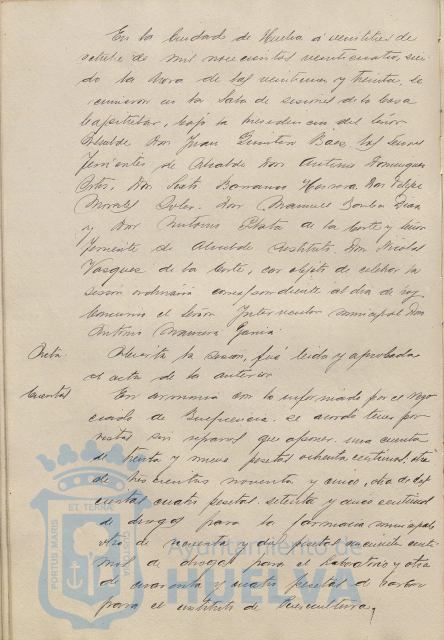 En la Ciudad de Huelva á veintitres de
octubre de mil novecientos veinticuatro, sien
do la hora de las veintiuna y treinta, se
reunieron en la Sala de sesiones de la Casa
Capitular, bajo la presidencia del Señor
Alcalde Don Juan Quintero Baez, los Señores
Tenientes de Alcalde Don Antonio Dominguez
Don Barranco Herrera, Don Felipe
Morales Don Manuel
y Don Antonio Plata de la Corte y Señor
Teniente de Alcalde sustituto Don Nicolas
Vazquez de la Corte, con objeto de celebrar la
sesión ordinaria correspondiente al dia de hoy
Concurrio el Señor Interventor municipal Don
Antonio Garcia.
Acta. Abierta la sesion, fué leida y aprobada
el acta de la anterior
Cuentas En armonia con lo informado por el Nego
ciado de Beneficencia, se acordó tener por
vistas sin reparos que oponer, una cuenta
de y nueve pesetas ochenta centimos, otra
de trescientas noventa y cinco, otra de dos
cientas cuatro pesetas, setenta y cinco centimos
de drogas para la farmacia municipal,
otra de noventa y dos pesetas cincuenta centi
mos de drogas para el Laboratorio y otra
de cuarenta y cuatro pesetas de carbon
para el instituto de Puericultura,
PORTUS MARIS
ET TERRÆ
CUSTODIA
Ayuntamiento de
HUELVA